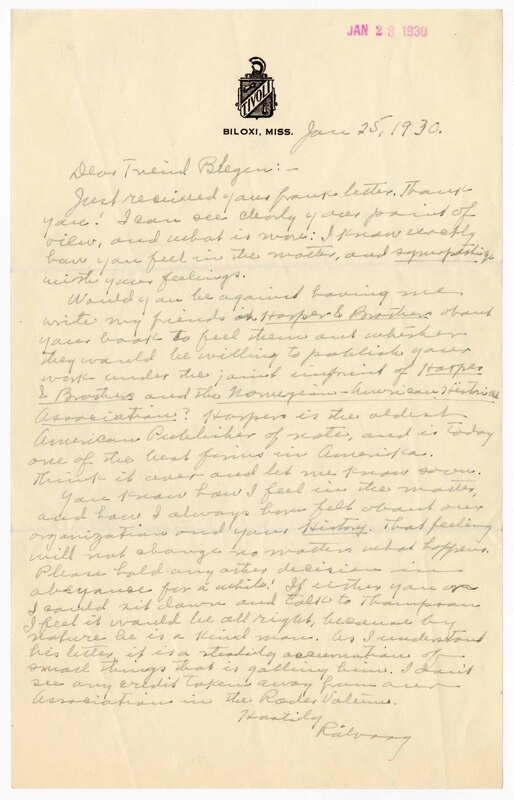 JAN 28 1930
TIVOLI
BILOXI, MISS.
Jan 25, 1930.
Dear Friend Blegen:-
Just received your frank letter. Thank
you! I can see clearly your point of
view, and what is more: I know exactly
how you feel in the matter, and sympathize
with your feelings.
Would you be against having me
write my friends in Harper & Brothers about
your book to feel them out whether
they would be willing to publish your
work under the joint imprint of Harper
& Brothers and the Norwegian-American Historical
Association? Harpers is the oldest
American Publisher of note, and is today
one of the best firms in Amerika.
Think it over and let me know soon.
You know how I feel in the matter,
and how I always have felt about our
organization and your History. That feeling
will not change no matter what happens.
Please hold any other decision in
abeyance for a while! If either you or
I could sit down and talk to Thompson
I feel it would be all right, because by
nature he is a kind man. As I understand
his letter, it is a steady accumation of
small things that is galling him. I don't
see any credit taken away from our
Association in the Rodes Volume.
Hastily
Rölvaag